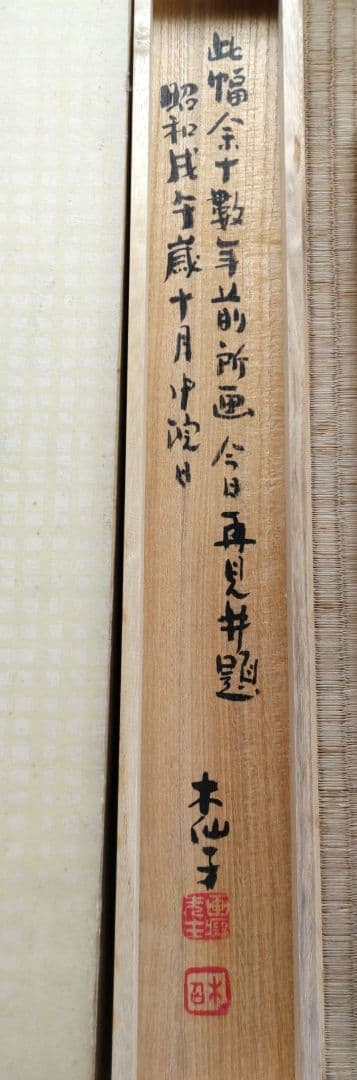 此幅余十數年前所画今日再見并題
昭和戊午歳十月中浣日
木仙子